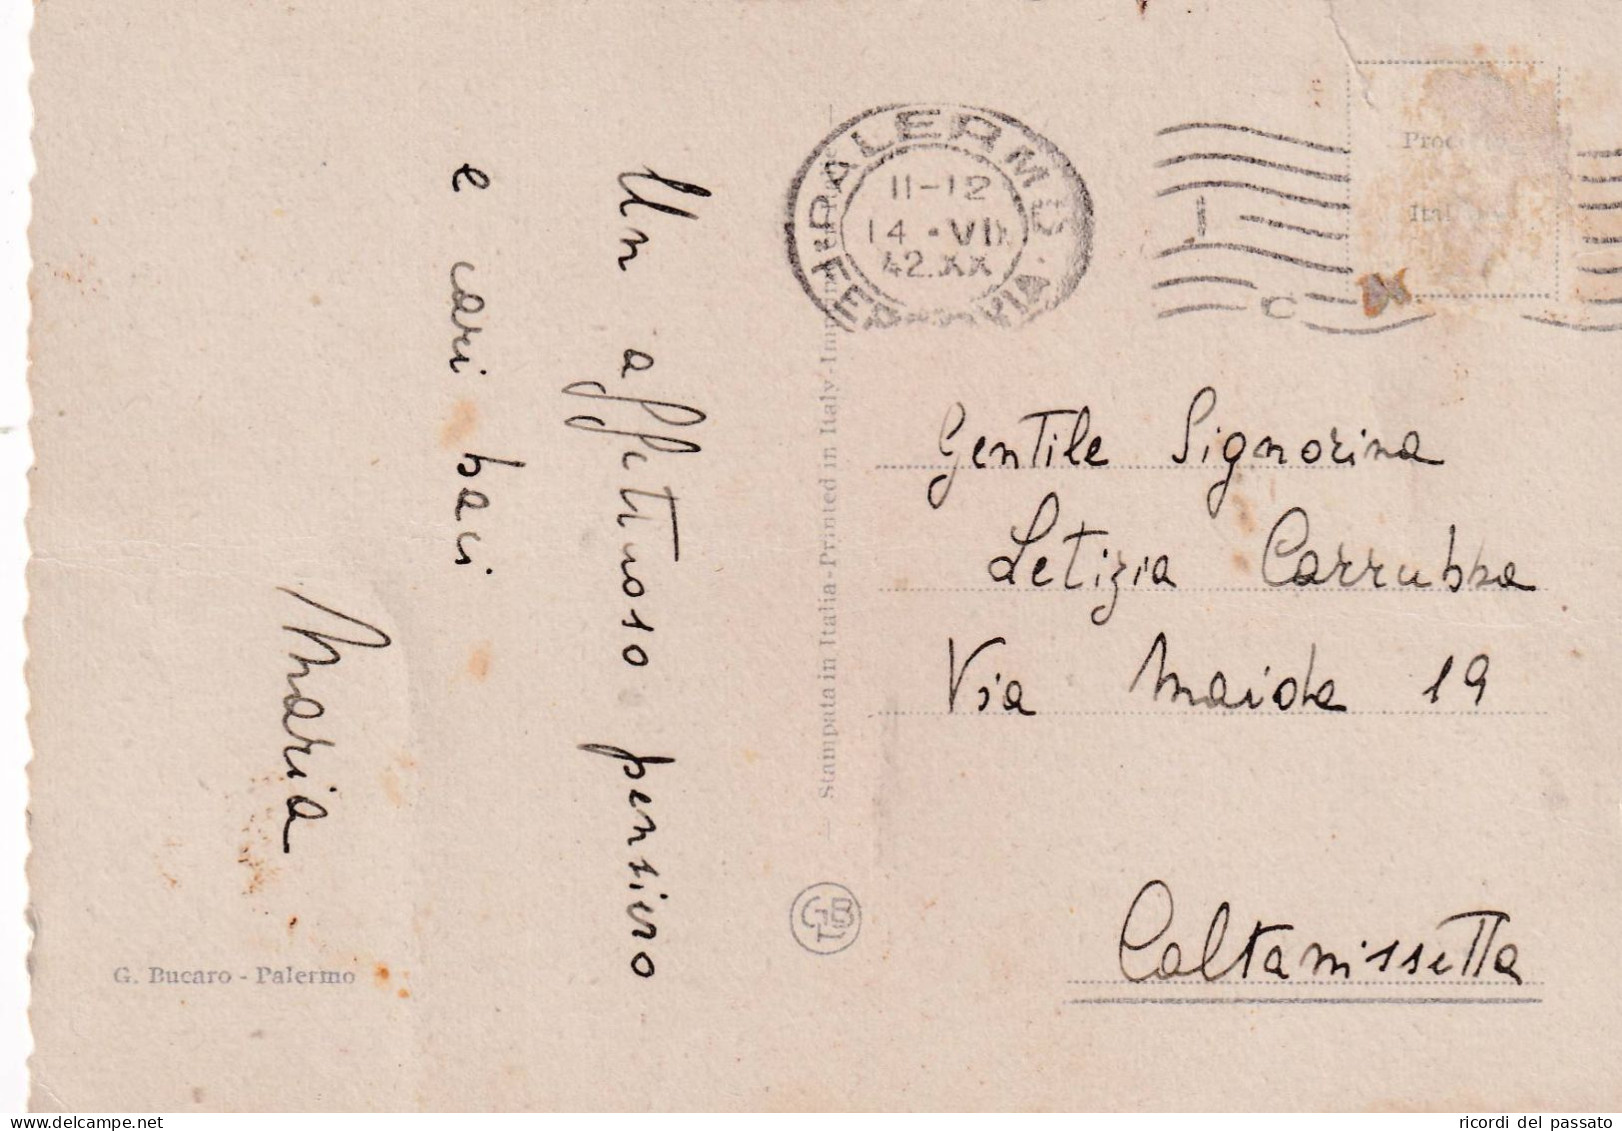 Un affettuoso pensiero
e cari baci
Maria
G. Bucaro - Palermo
Stampata in Italia-Printed in Italy-
GBP
PALERMO
FERROVIA
11-12
14 · VII
42.XX
Gentile Signorina
Letizia Carrubba
Via Maida 19
Caltanissetta
ricordi del passato